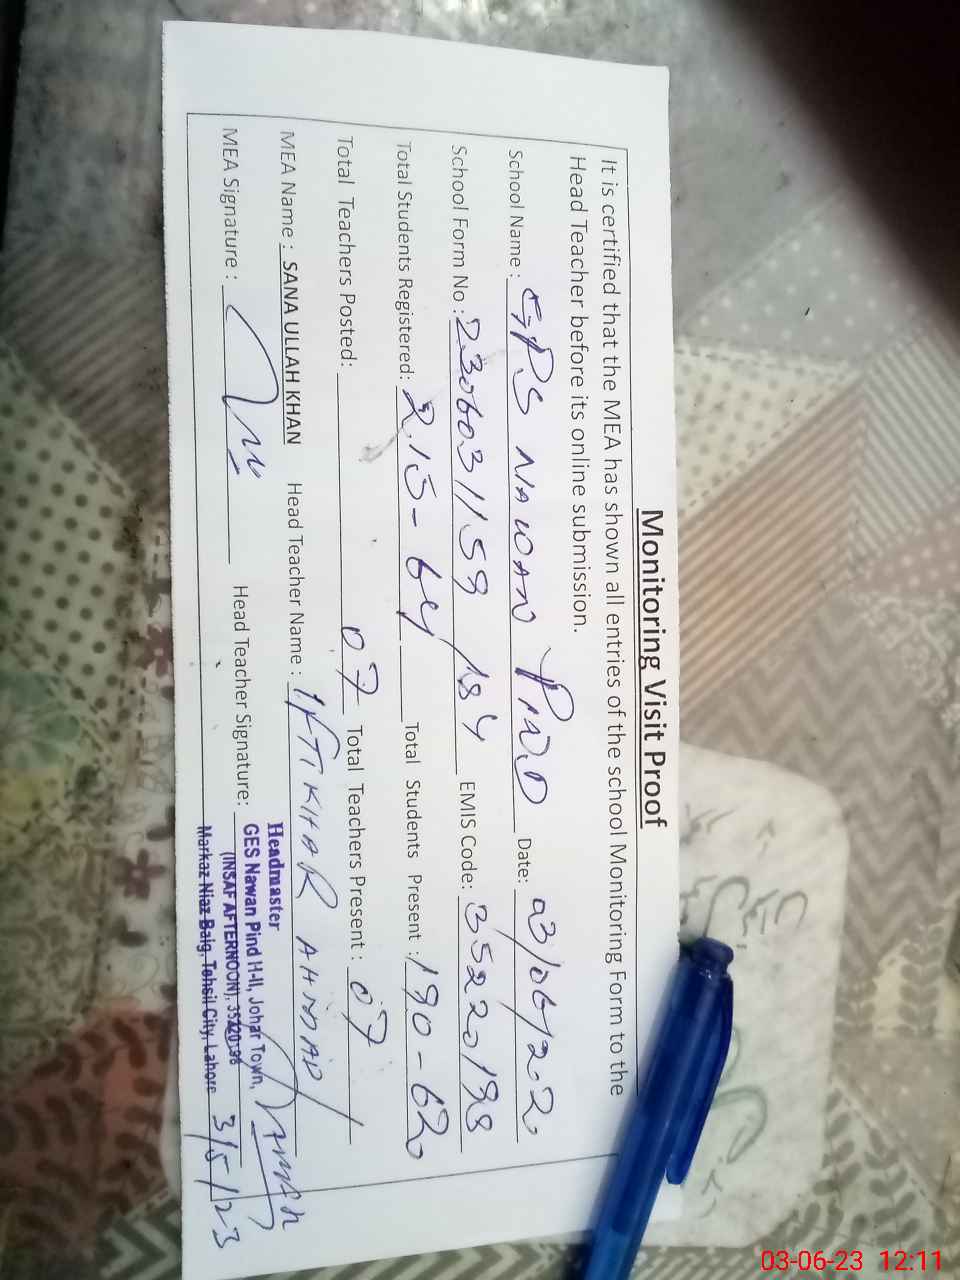 Monitoring Visit Proof
It is certified that the MEA has shown all entries of the school Monitoring Form to the
Head Teacher before its online submission.
School Name : GPS NAWAN PIND Date: 03/06/202
School Form No : 2306031159 /184 EMIS Code: 35220198
Total Students Registered: 215-64 Total Students Present : 190-62
Total Teachers Posted: 07 Total Teachers Present : 07
MEA Name : SANA ULLAH KHAN Head Teacher Name : IFTIKHAR AHMAD
MEA Signature : Head Teacher Signature:
Headmaster
GES Nawan Pind H-II, Johar Town,
(INSAF AFTERNOON), 35220198
Markaz Niaz Baig, Tehsil City, Lahore
3/5/23
03-06-23 12:11